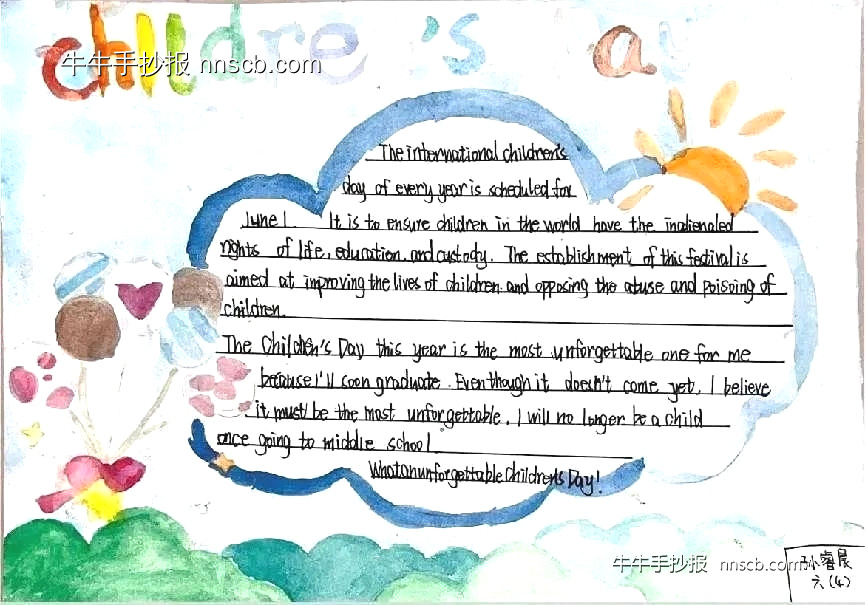 children's ay
牛牛手抄报 nnscb.com
The international children's
day of every year is scheduled for
June 1. It is to ensure children in the world have the inalienaled
rights of life, education, and custody. The establishment of this festival is
aimed at inproving the lives of children and opposing the abuse and poisoing of
children.
The Children's Day this year is the most unforgettable one for me
because I'll soon graduate. Even though it doesn't come yet, I believe
it must be the most unforgettable. I will no longer be a child
once going to middle school.
What an unforgettable Children's Day!
牛牛手抄报 nnscb.com
孙睿晨
六(4)